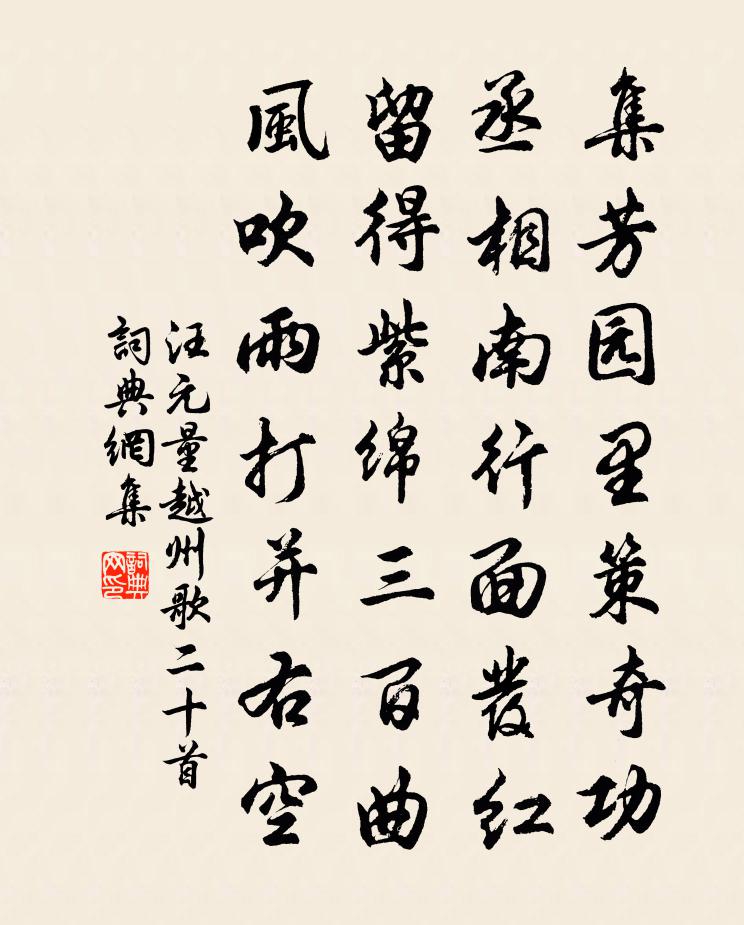 集芳园里策奇功
丞相南行面發红
留得紫绵三百曲
風吹雨打并右空
汪元量越州歌二十首
詞典網集
詞典網印